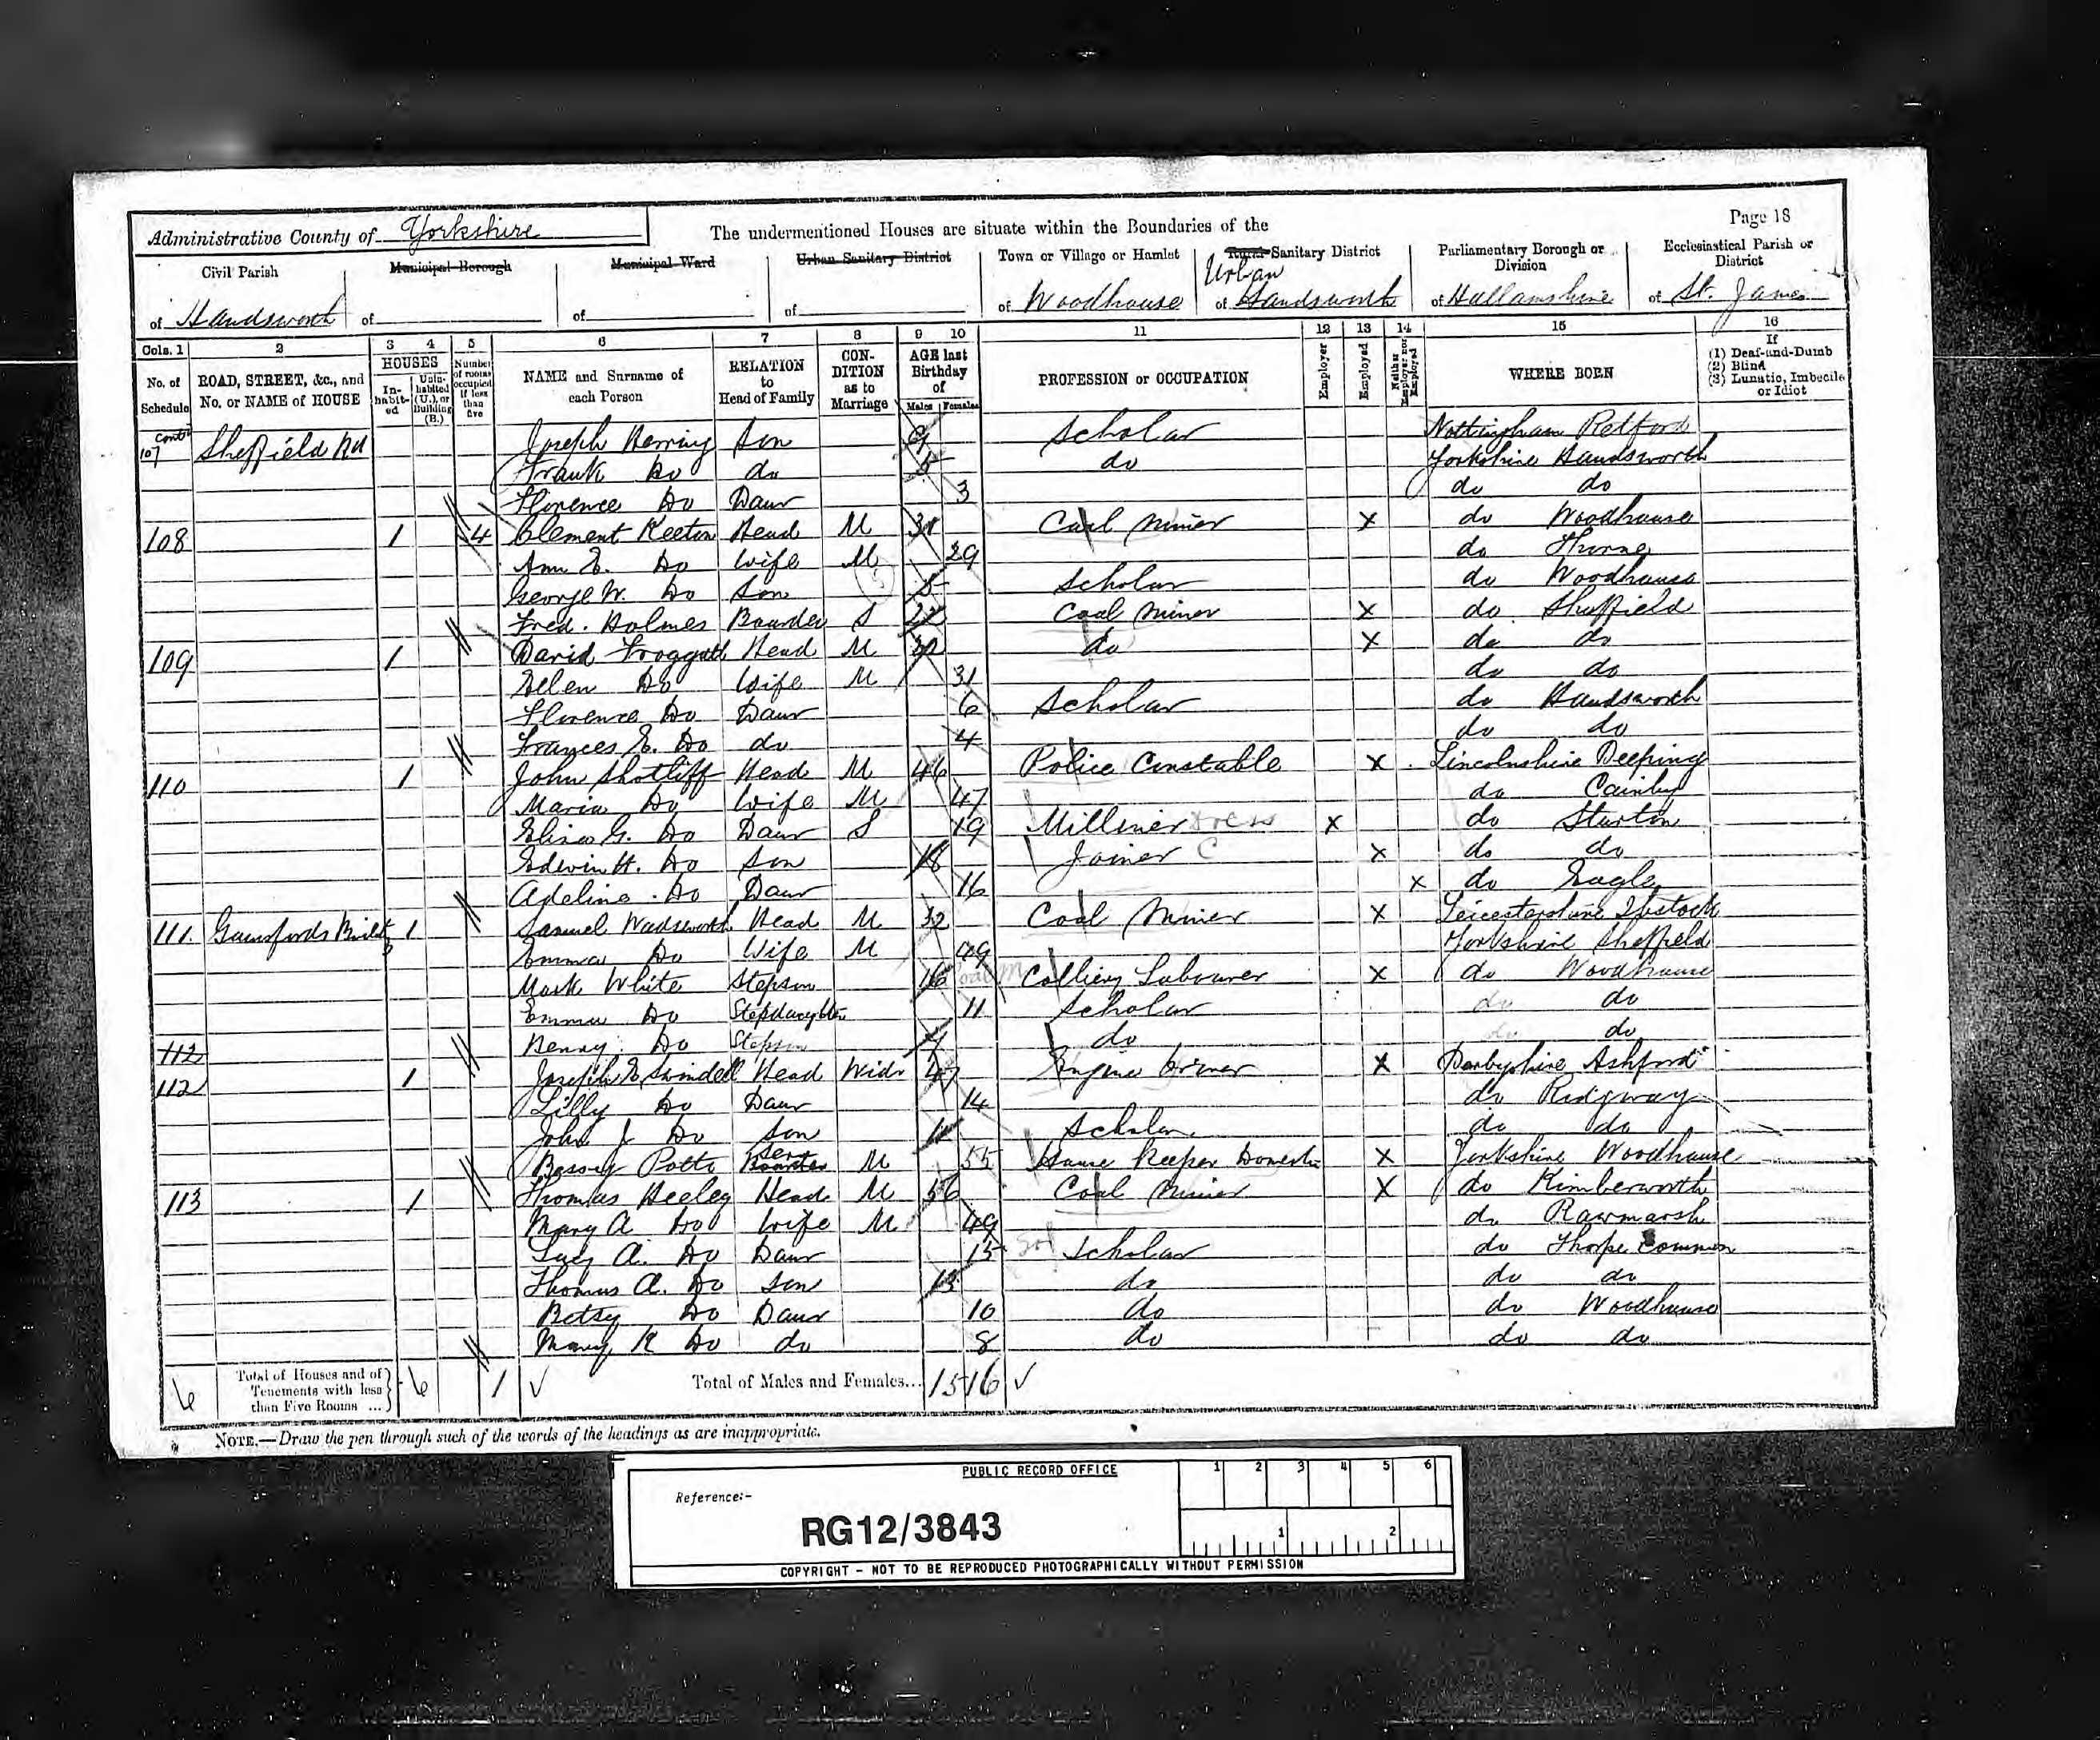 Page 18
Administrative County of Yorkshire The undermentioned Houses are situate within the Boundaries of the
Civil Parish Municipal Borough Municipal Ward Urban Sanitary District Town or Village or Hamlet Rural Sanitary District Parliamentary Borough or Division Ecclesiastical Parish or District
Urban
of Handsworth of of of of Woodhouse of Handsworth of Hallamshire of St. James
Cols. 1 2 3 4 5 6 7 8 9 10 11 12 13 14 15 16
No. of Schedule ROAD, STREET, &c., and No. or NAME of HOUSE HOUSES In-habit-ed Unin-habited (U.), or Building (B.) Number of rooms occupied if less than five NAME and Surname of each Person RELATION to Head of Family CON-DITION as to Marriage AGE last Birthday of Males Females PROFESSION or OCCUPATION Employer Employed Neither Employer nor Employed WHERE BORN If (1) Deaf-and-Dumb (2) Blind (3) Lunatic, Imbecile or Idiot
107 contd Sheffield Rd Joseph Herring Son 9 Scholar Nottingham Retford
Frank Do do 5 do Yorkshire Handsworth
Florence Do Daur 3 do do
108 1 4 Clement Keeton Head M 31 Coal Miner X do Woodhouse
Ann E. Do Wife M 29 do Thorne
George W. Do Son 5 Scholar do Woodhouse
Fred. Holmes Boarder S 22 Coal Miner X do Sheffield
109 1 David Froggatt Head M 32 do X do do
Ellen Do Wife M 31 do do
Florence Do Daur 6 Scholar do Handsworth
Frances E. Do do 4 do do
110 1 John Shotliff Head M 46 Police Constable X Lincolnshire Deeping
Maria Do Wife M 47 do Cainby
Eliza G. Do Daur S 19 Milliner Dress X do Sturton
Edwin H. Do Son 18 Joiner C X do do
Adeline Do Daur 16 X do Eagle
111 1 Samuel Wadsworth Head M 32 Coal Miner X Leicestershire Ibstock
Emma Do Wife M 49 Yorkshire Sheffield
Mark White Stepson 16 Colliery Labourer X do Woodhouse
Emma Do Stepdaughter 11 Scholar do do
112 Henry Do Stepson 7 do do do
112 1 Joseph E Swindell Head Widr 47 Engine Driver X Derbyshire Ashford
Lilly Do Daur 14 do Ridgway
John J Do Son Scholar do do
Potts Boarder Ser M 55 House Keeper Domestic X Yorkshire Woodhouse
113 1 Thomas Heeley Head M 56 Coal Miner X do Kimberworth
Mary A Do Wife M 49 do Rawmarsh
Lucy A. Do Daur 15 Scholar do Thorpe Common
Thomas A. Do Son 13 do do do
Betsy Do Daur 10 do do Woodhouse
Mary K Do do 8 do do do
6 Total of Houses and of Tenements with less than Five Rooms ... 6 1 Total of Males and Females... 15 16
NOTE.—Draw the pen through such of the words of the headings as are inappropriate.
PUBLIC RECORD OFFICE 1 2 3 4 5 6
Reference:-
RG12/3843 1 2
COPYRIGHT - NOT TO BE REPRODUCED PHOTOGRAPHICALLY WITHOUT PERMISSION